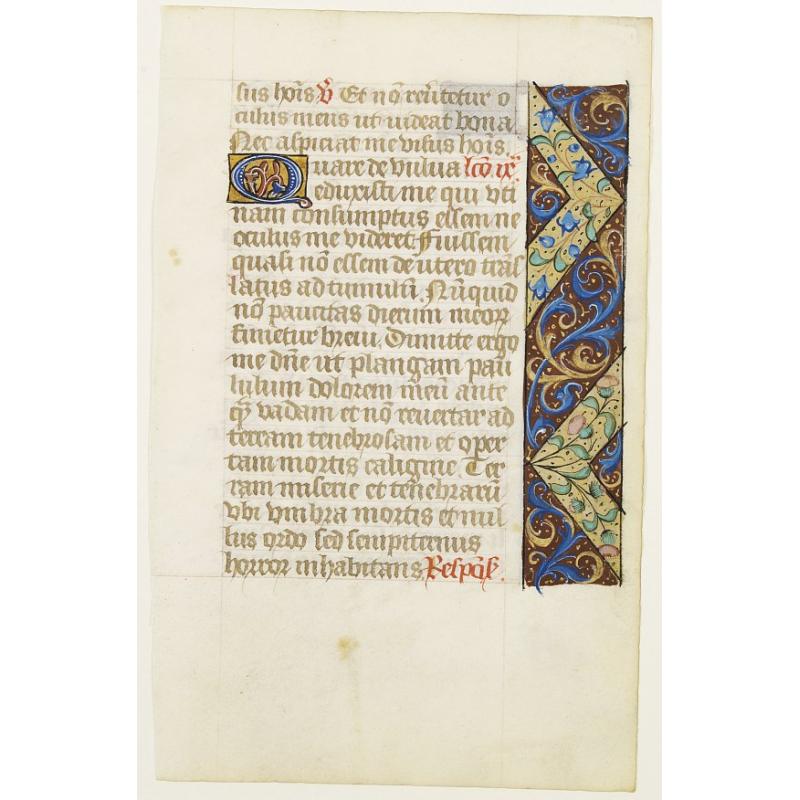 sus hoīs V̄ Et nō reu̅tetur o
culus meus ut uideat bona
Nec aspiciat me visus hoīs.
Quare de vulua lc̄o ix̄.
eduxisti me qui vti
nam consumptus essem ne
oculus me videret Fuissem
quasi nō essem de utero trās
latus ad tumulū. Nūquid
nō paucitas dierum meoꝝ
finietur breui. Dimitte ergo
me dn̄e ut plangam pau
lulum dolorem meū ante
qꝫ vadam et nō reuertar ad
terram tenebrosam et oper
tam mortis caligine Ter
ram miserie et tēnebrarū
vbi vmbra mortis et nul
lus ordo sed sempiternus
horror inhabitans. Respōs.